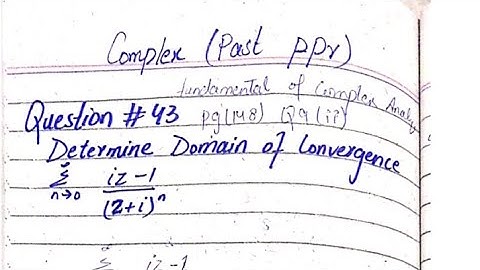 Complex (Past ppr)
fundamental of Complex Analy
Question # 43 pg(148) Q9(ii)
Determine Domain of Convergence
∞
Σ iz-1
n→0 (2+i)^n
iz-1